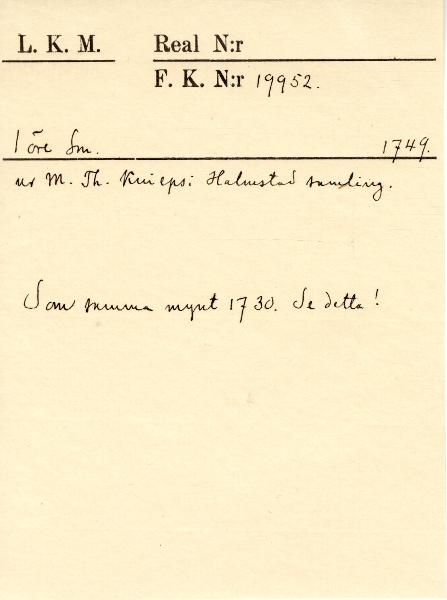 L. K. M. Real N:r
F. K. N:r 19952.
1 öre Sm. 1749.
ur M. Th. Knieps i Halmstad samling.
Som samma mynt 1730. Se detta!